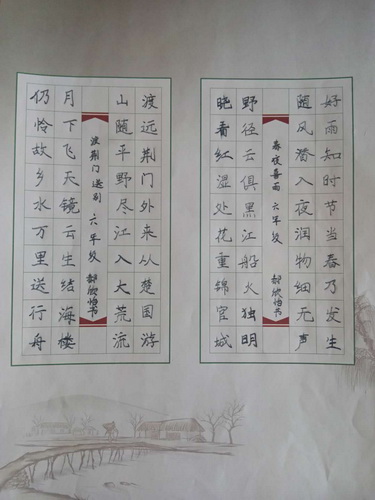 好雨知时节当春乃发生
随风潜入夜润物细无声
春夜喜雨 六年级 郝欣怡书
野径云俱黑江船火独明
晓看红湿处花重锦官城
渡远荆门外来从楚国游
山随平野尽江入大荒流
渡荆门送别 六年级 郝欣怡书
月下飞天镜云生结海楼
仍怜故乡水万里送行舟